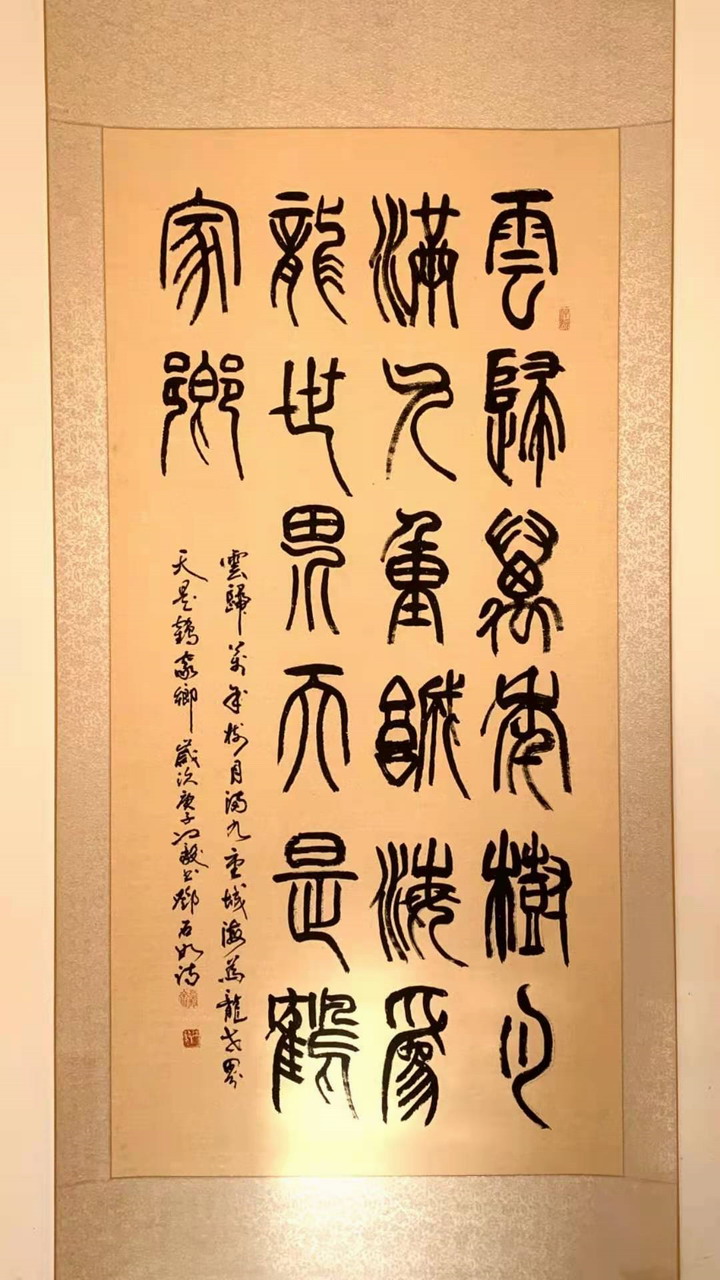 雲歸萬年樹月
滿九重城海爲
龍世界天是鶴
家鄉
雲歸萬年樹月滿九重城海為龍世界
天是鶴家鄉 歲次庚子 書鄧石如詩